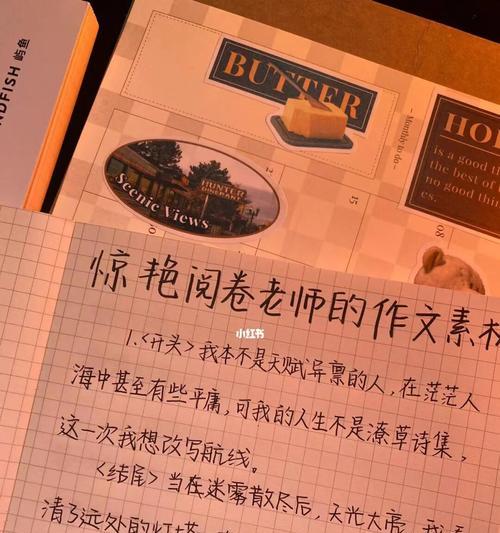 NDFISH 屿鱼
BUTTER
Monthly to do
HUNTER
Scenic Views
2
15
08
HO
is a good th
the best of
no good thin
es.
惊艳阅卷老师的作文素材
小红书
1.<开头>我本不是天赋异禀的人,在茫茫人
海中甚至有些平庸,可我的人生不是潦草诗集,
这一次我想改写航线。
<结尾>当在迷雾散尽后,天光大亮,我看
清了远处的灯塔